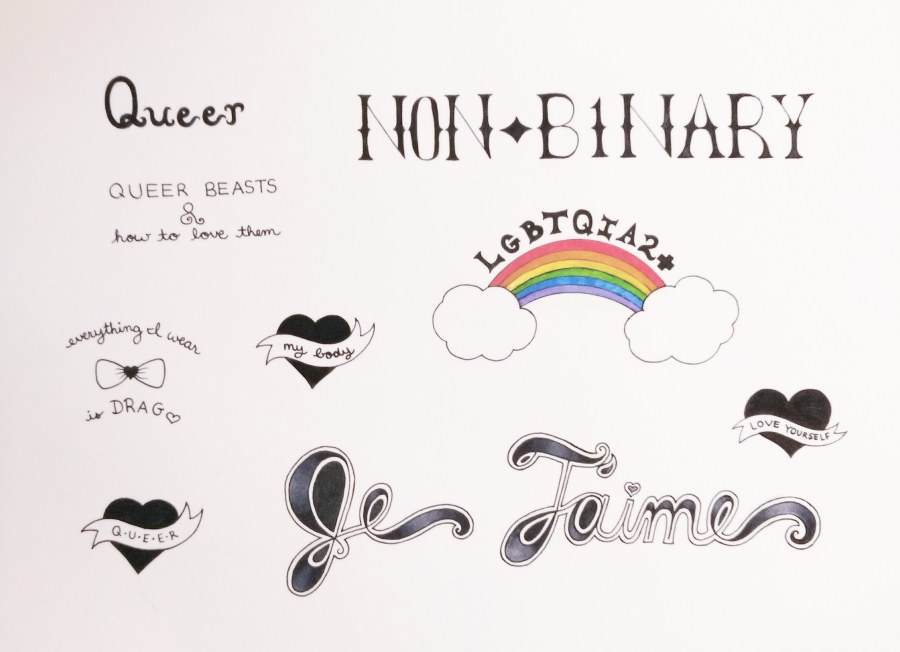 Queer
NON✦B1NARY
QUEER BEASTS
&
how to love them
LGBTQIA2+
everything I wear
is DRAG♡
my body
LOVE YOURSELF
Q·U·E·E·R
Je T'aime